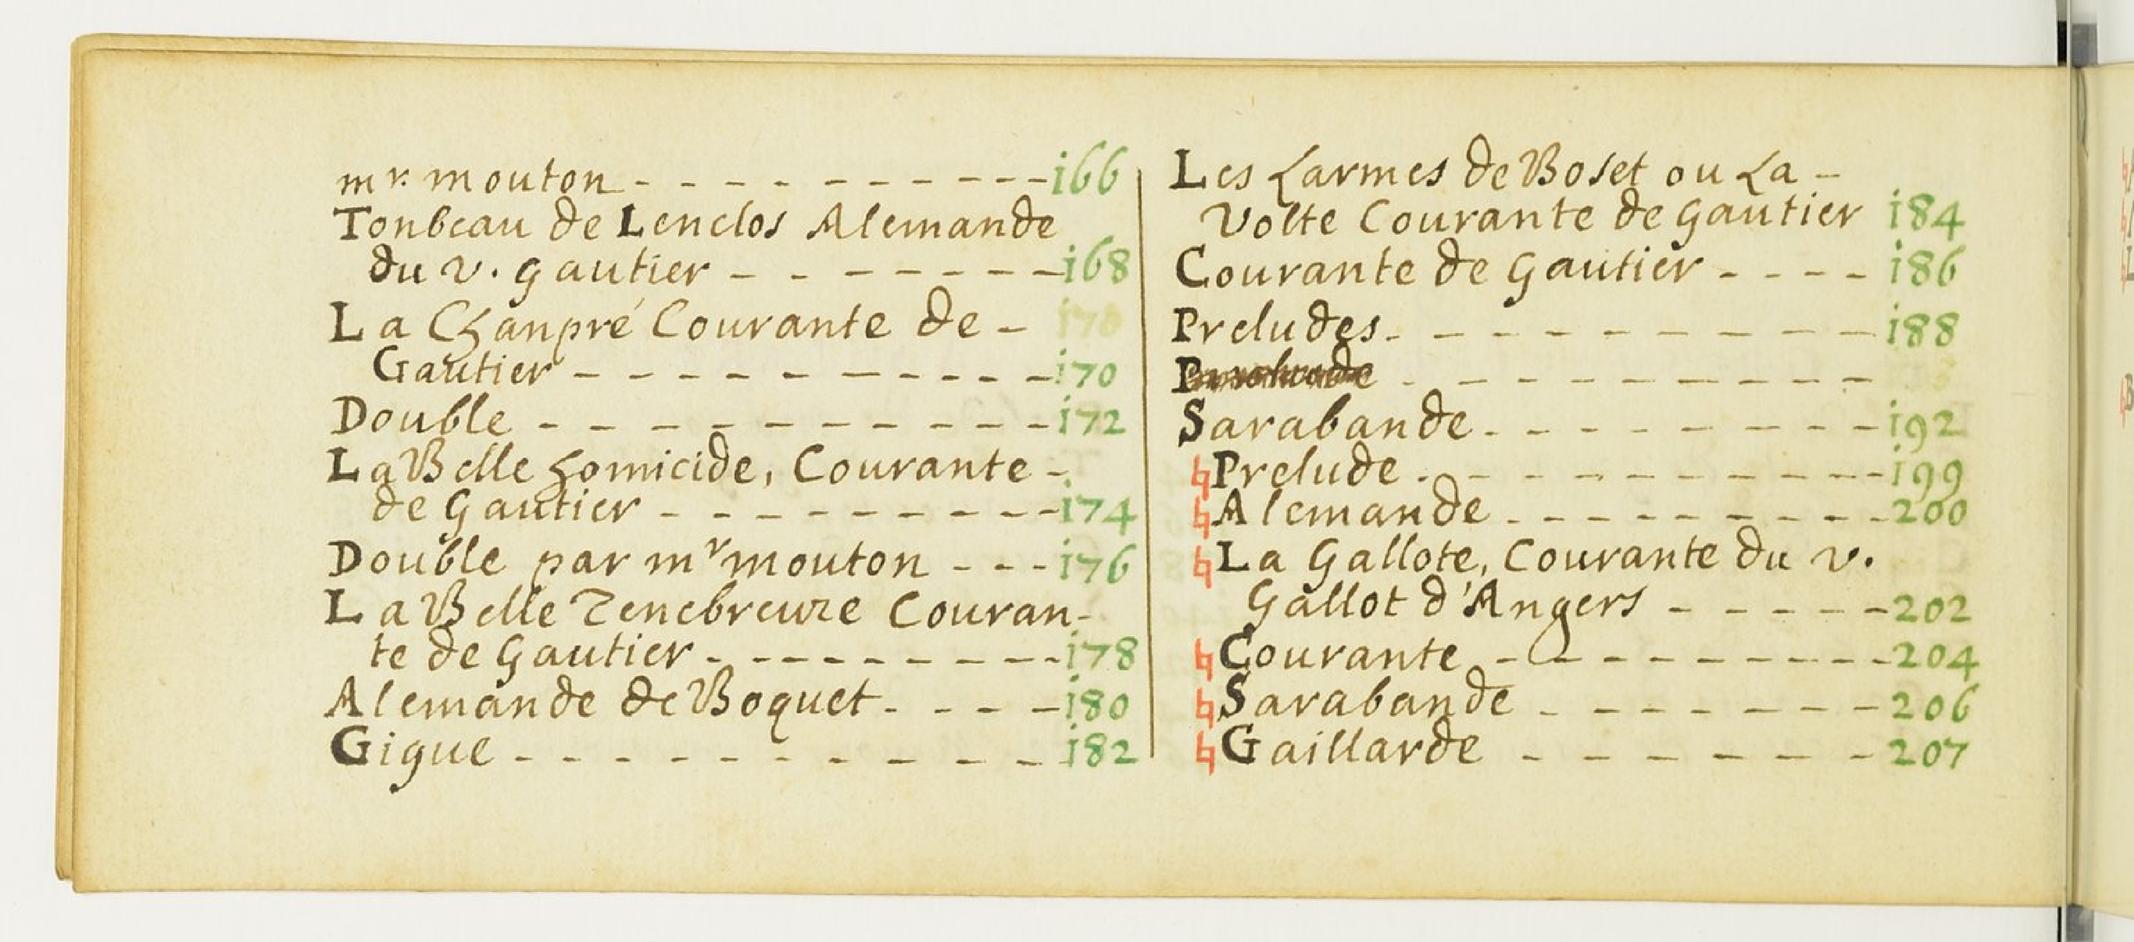 mr. mouton - - - - - - - - - - - 166
Tonbeau de Lenclos Alemande
du v. gautier - - - - - - - - 168
La Chanpré Courante de -
Gautier - - - - - - - - - - - 170
Double - - - - - - - - - - - 172
La Belle homicide, Courante -
de Gautier - - - - - - - - - 174
Double par mr mouton - - - 176
La Belle Tenebreuze Couran-
te de Gautier - - - - - - - - - 178
Alemande de Boquet - - - - 180
Gigue - - - - - - - - - - - - 182
Les Larmes de Boset ou La -
Volte Courante de Gautier 184
Courante de Gautier - - - - 186
Preludes - - - - - - - - - - 188
Sarabande - - - - - - - - - 192
♮Prelude - - - - - - - - - - - 199
♮Alemande - - - - - - - - - 200
♮La Gallote, Courante du v.
Gallot d'Angers - - - - - 202
♮Courante - - - - - - - - - - 204
♮Sarabande - - - - - - - - 206
♮Gaillarde - - - - - - - 207